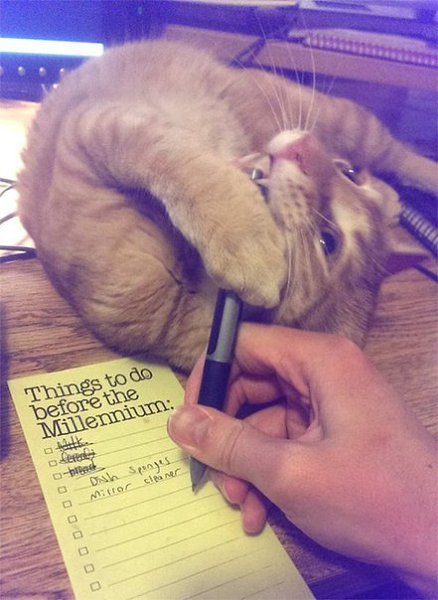 Things to do
before the
Millennium:
Milk
Cereal
bread
Dish sponges
Mirror cleaner